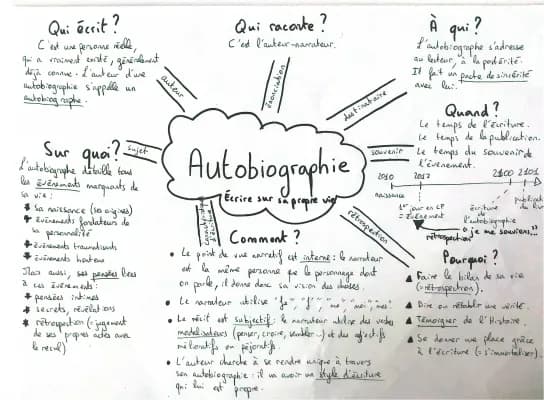 Qui écrit ?
C'est une personne réelle,
qui a vraiment existé, généralement
déjà connue. L'auteur d'une
autobiographie s'appelle un
autobiographe.
auteur
Qui raconte ?
C'est l'auteur-narrateur.
énonciation
À qui ?
L'autobiographe s'adresse
au lecteur, à la postérité.
Il fait un pacte de sincérité
avec lui.
destinataire
Quand ?
Le temps de l'écriture.
Le temps de la publication.
Le temps du souvenir de
l'événement.
souvenir
2010 2017 2100 2101
naissance
1er jour en CP
= événement
écriture
de
l'autobiographie
publication
du livre
rétrospection
"je me souviens..."
Autobiographie
Écrire sur sa propre vie
Sur quoi ?
sujet
L'autobiographe détaille tous
les événements marquants de
sa vie :
+ sa naissance (ses origines)
+ événements fondateurs de
sa personnalité
+ événements traumatisants
+ événements honteux
Mais aussi, ses pensées liées
à ces événements :
+ pensées intimes
+ secrets, révélations
+ rétrospection (= jugement
de ses propres actes avec
le recul)
caractéristiques
d'écriture
Comment ?
• Le point de vue narratif est interne : le narrateur
est la même personne que le personnage dont
on parle, il donne donc sa vision des choses.
• Le narrateur utilise "je", "j'", "me", "moi", "mes".
• Le récit est subjectif : le narrateur utilise des verbes
modalisateurs (penser, croire, sembler...) et des adjectifs
mélioratifs ou péjoratifs.
• L'auteur cherche à se rendre unique à travers
son autobiographie : il va avoir un style d'écriture
qui lui est propre.
rétrospection
Pourquoi ?
▲ Faire le bilan de sa vie
(= rétrospection).
▲ Dire ou rétablir une vérité.
▲ Témoigner de l'Histoire.
▲ Se donner une place grâce
à l'écriture (= s'immortaliser).